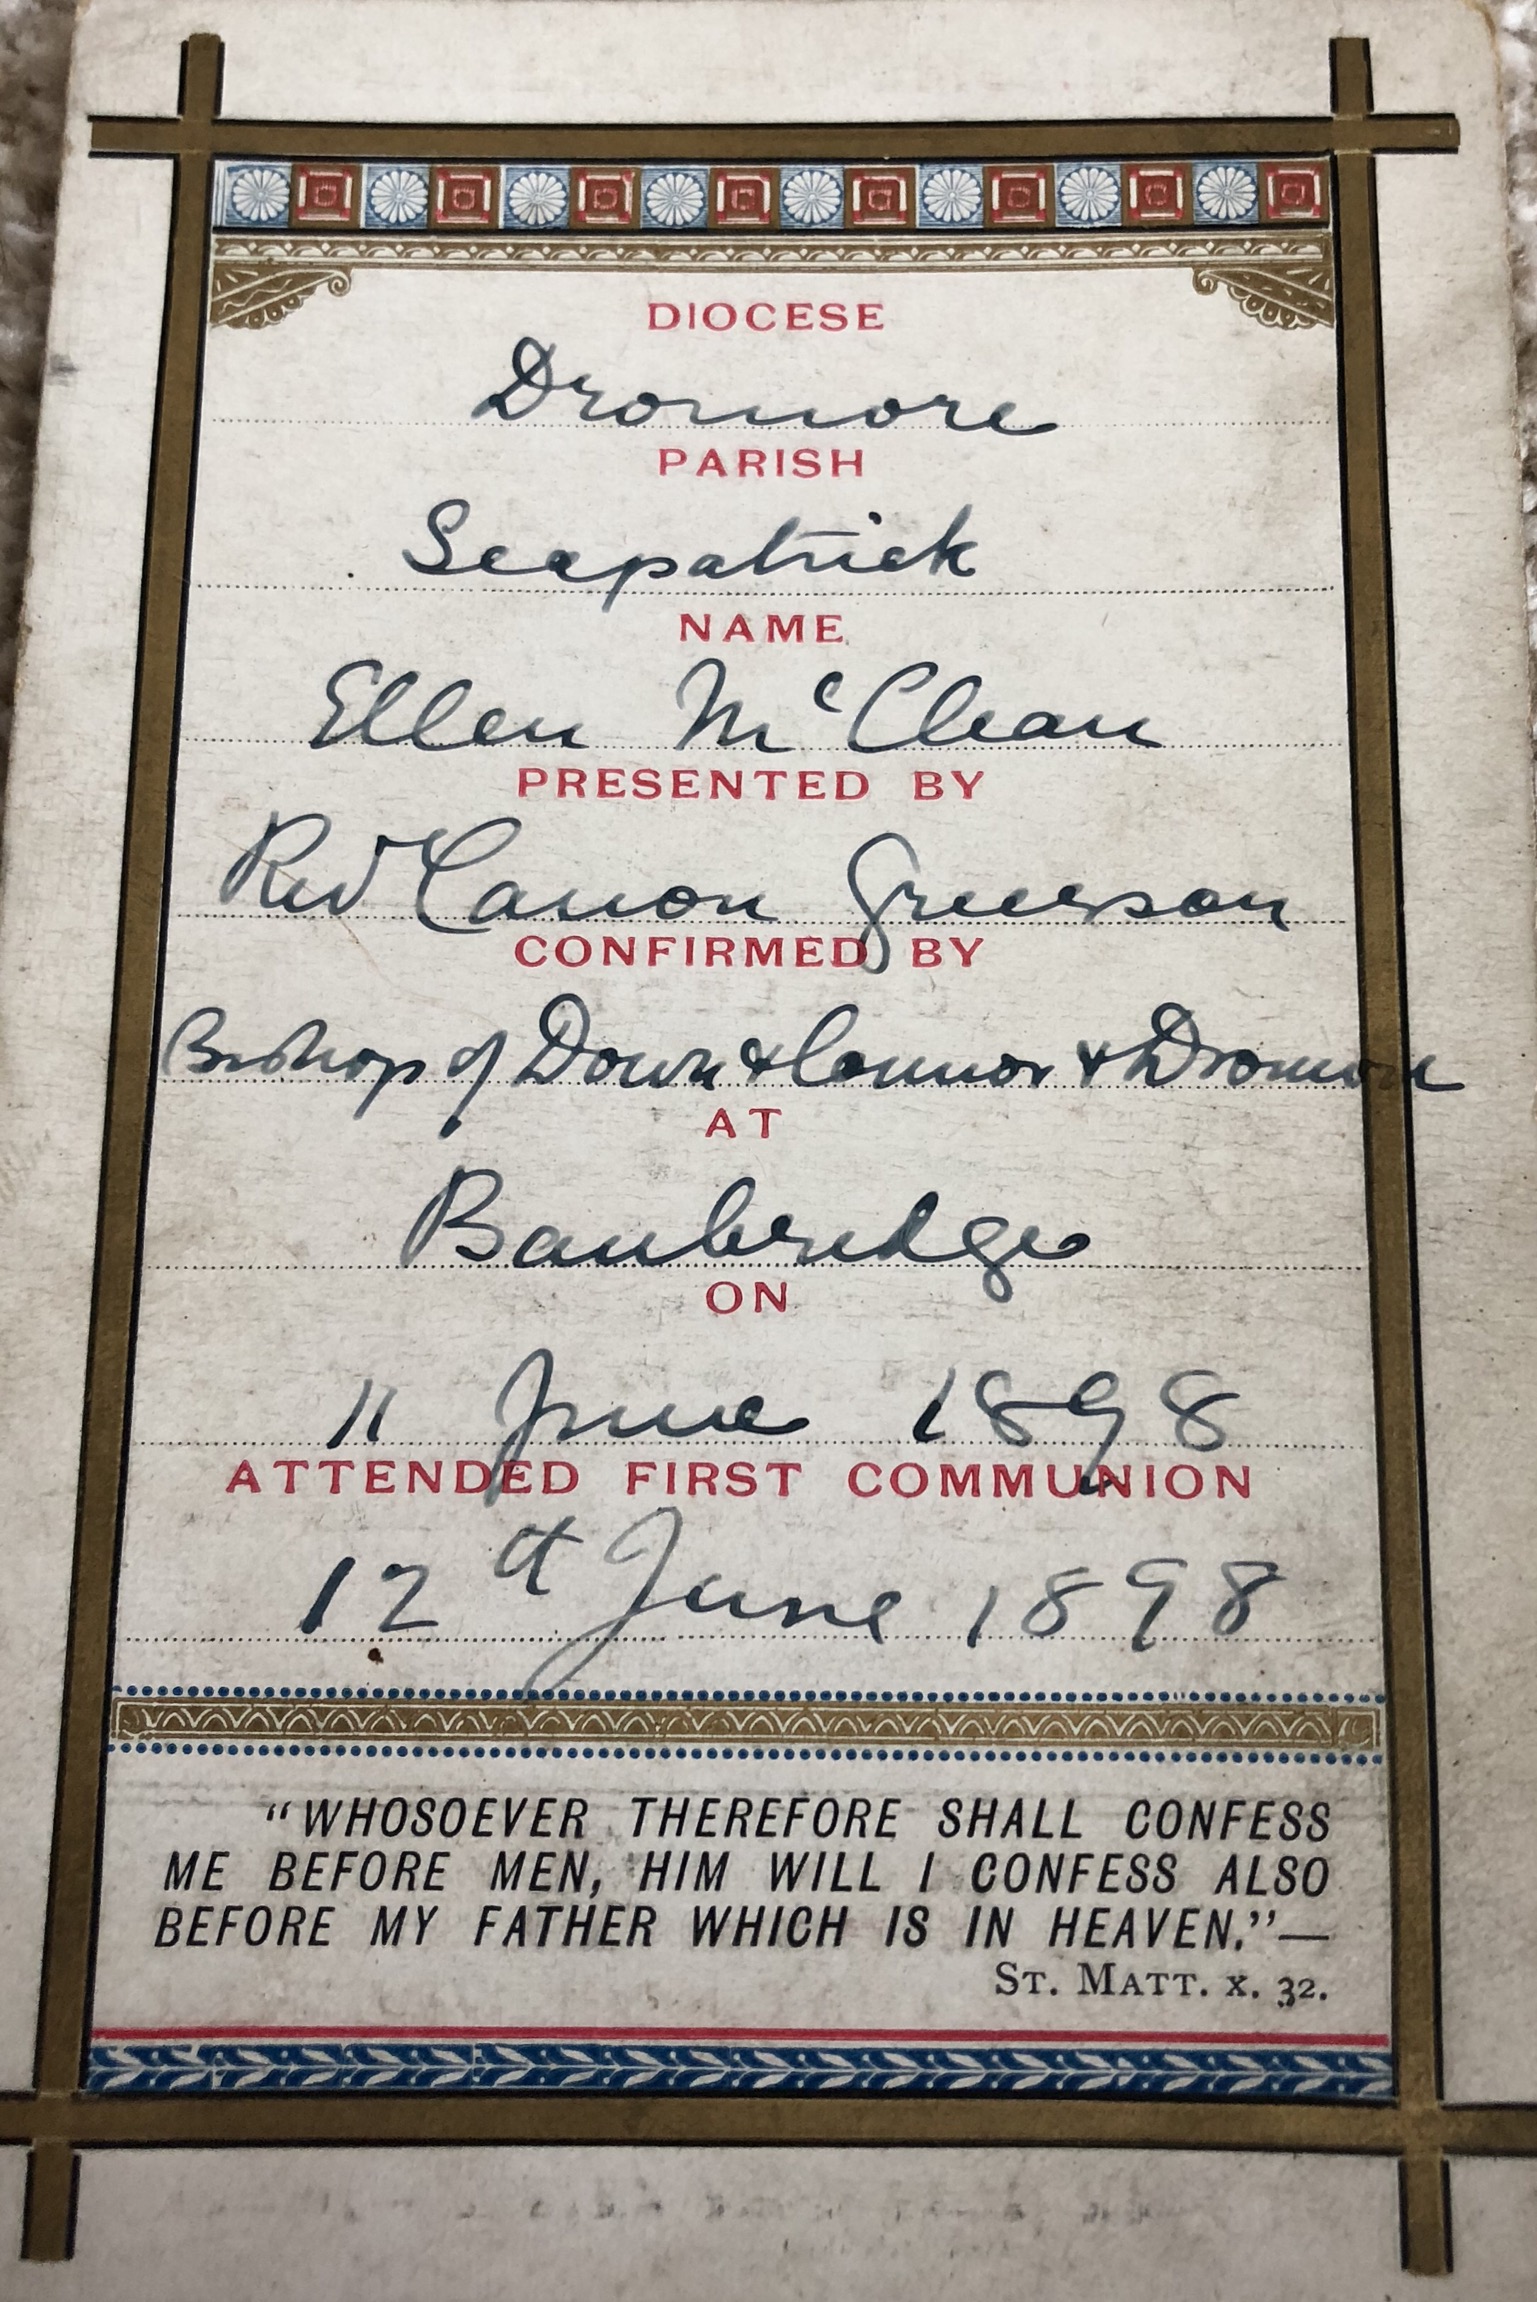 DIOCESE
Dromore
PARISH
Seapatrick
NAME
Ellen McClean
PRESENTED BY
Revd Canon Grierson
CONFIRMED BY
Bishop of Down & Connor & Dromore
AT
Banbridge
ON
11 June 1898
ATTENDED FIRST COMMUNION
12th June 1898
"WHOSOEVER THEREFORE SHALL CONFESS
ME BEFORE MEN, HIM WILL I CONFESS ALSO
BEFORE MY FATHER WHICH IS IN HEAVEN."—
ST. MATT. X. 32.